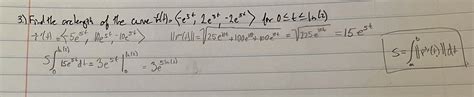 3) Find the arclength of the curve r(t) = ⟨-e^5t, 2e^5t, -2e^5t⟩ for 0 ≤ t ≤ ln(2)
r'(t) = ⟨-5e^5t, 10e^5t, -10e^5t⟩ ||r'(t)|| = √25e^10t + 100e^10t + 100e^10t = √225e^10t = 15e^5t
S∫₀^ln(2) 15e^5t dt = 3e^5t |₀^ln(2) = 3e^5ln(2)
S = ∫ₐ^b ||r'(t)|| dt